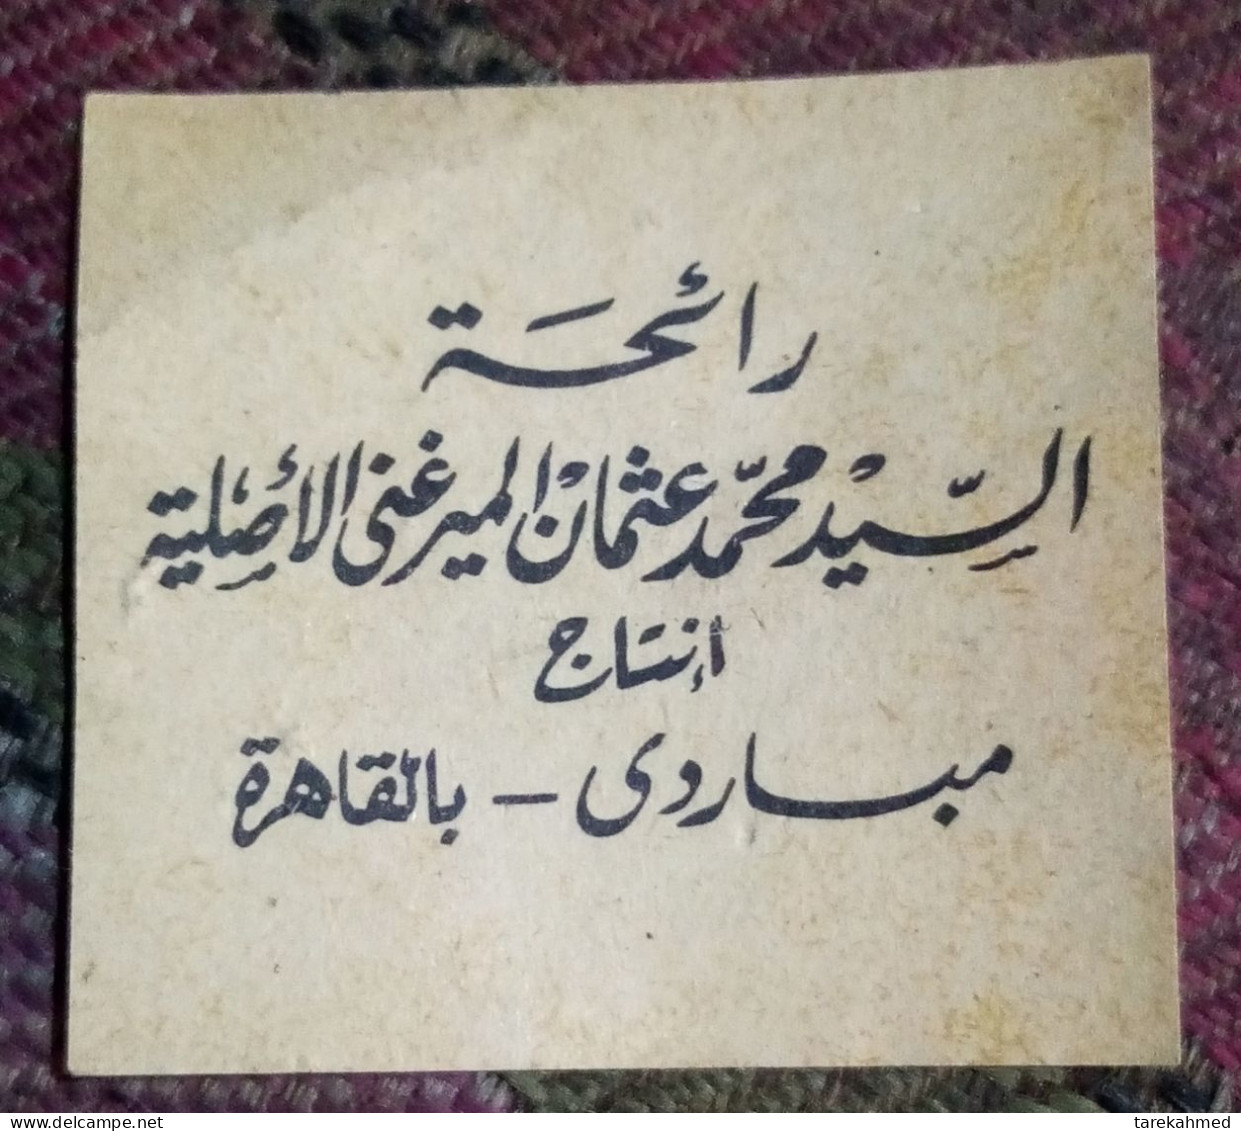 رائحة
السّيد محمّد عثمان الميرغنى الأصلية
إنتاج
مباردى - بالقاهرة
delcampe.net
tarekahmed